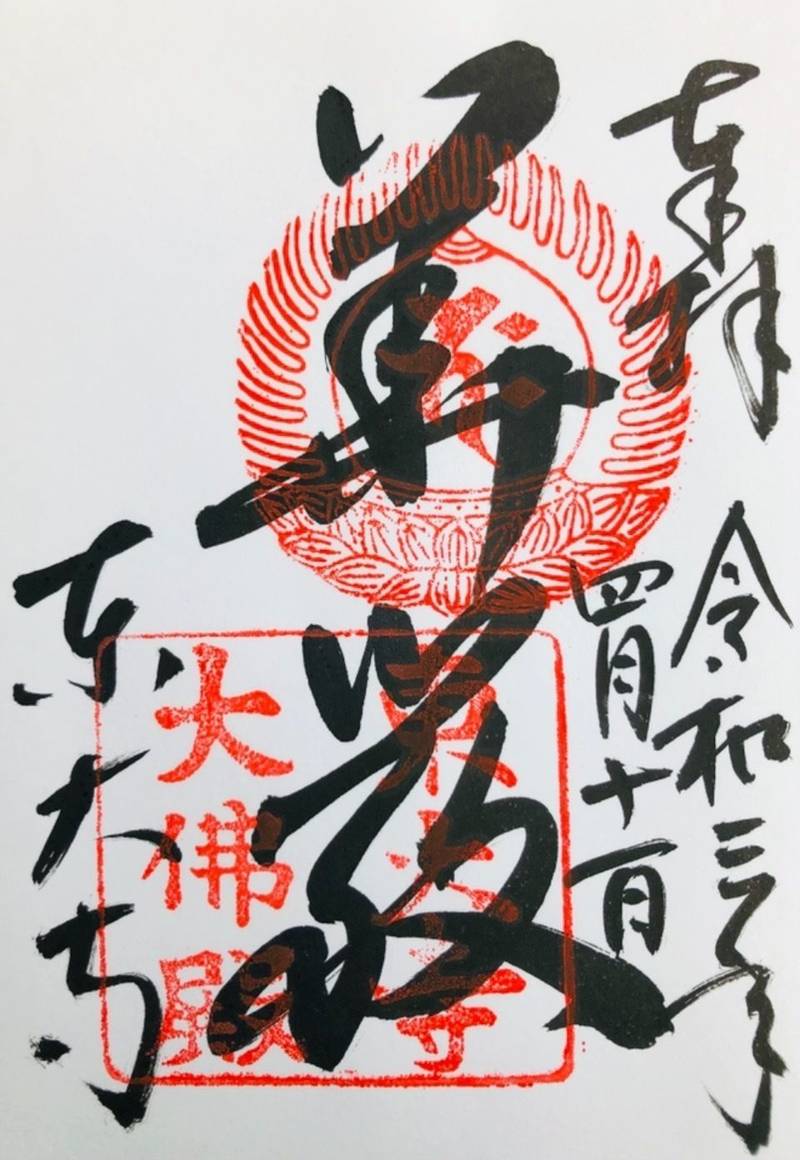 奉拝
令和三年
四月十一日
華厳
東大寺
東大寺
大佛殿